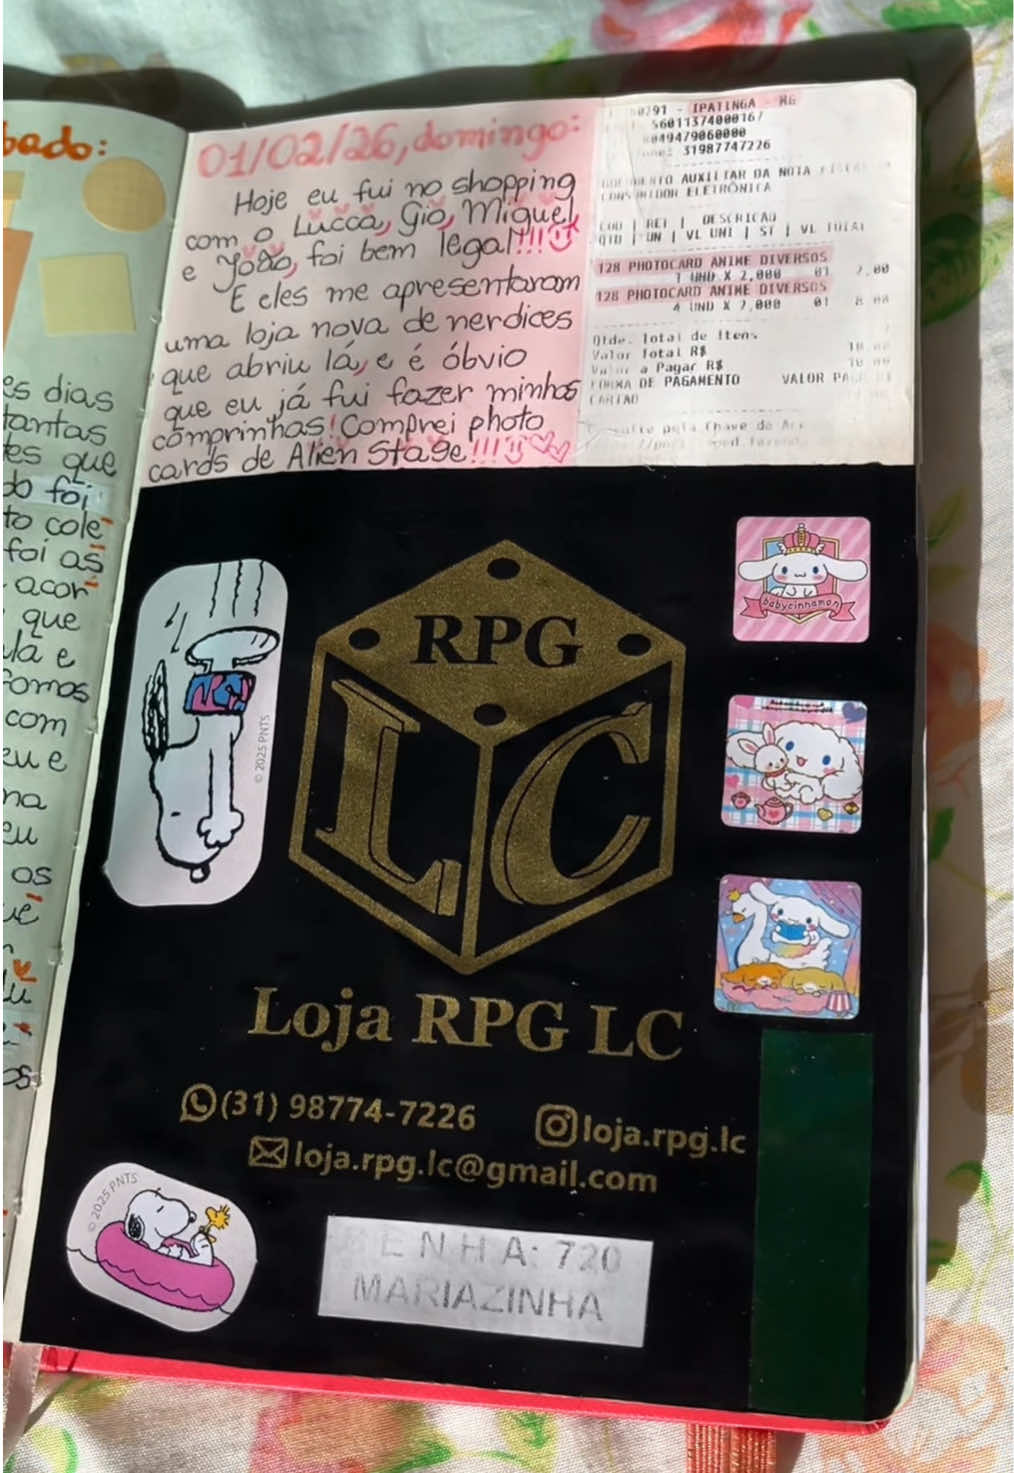 bado:
es dias
tantas
tes que
do foi
to cole
foi as
acor
que
la e
fomos
com
eu e
na
eu
os
01/02/26, domingo:
Hoje eu fui no shopping
com o Lucca, Gio, Miguel,
e João, foi bem legal!!!
E eles me apresentaram
uma loja nova de nerdices
que abriu lá, e é óbvio
que eu já fui fazer minhas
comprinhas! Comprei photo
cards de Alien Stage!!!
- IPATINGA - MG
31987747226
AUXILIAR DA NOTA
CONSUMIDOR ELETRÔNICA
COD | REF | DESCRICAO
QTD | UN | VL UNI | ST | VL TOTAL
128 PHOTOCARD ANIME DIVERSOS
1 UND X 2,000 01 2,00
128 PHOTOCARD ANIME DIVERSOS
4 UND X 2,000 01 8,00
Qtde. Total de Itens
Valor Total R$
Valor a Pagar R$
FORMA DE PAGAMENTO VALOR
CARTAO
RPG
LC
Loja RPG LC
(31) 98774-7226
loja.rpg.lc
loja.rpg.lc@gmail.com
© 2025 PNTS
babycinnamon
© 2025 PNTS
SENHA: 720
MARIAZINHA